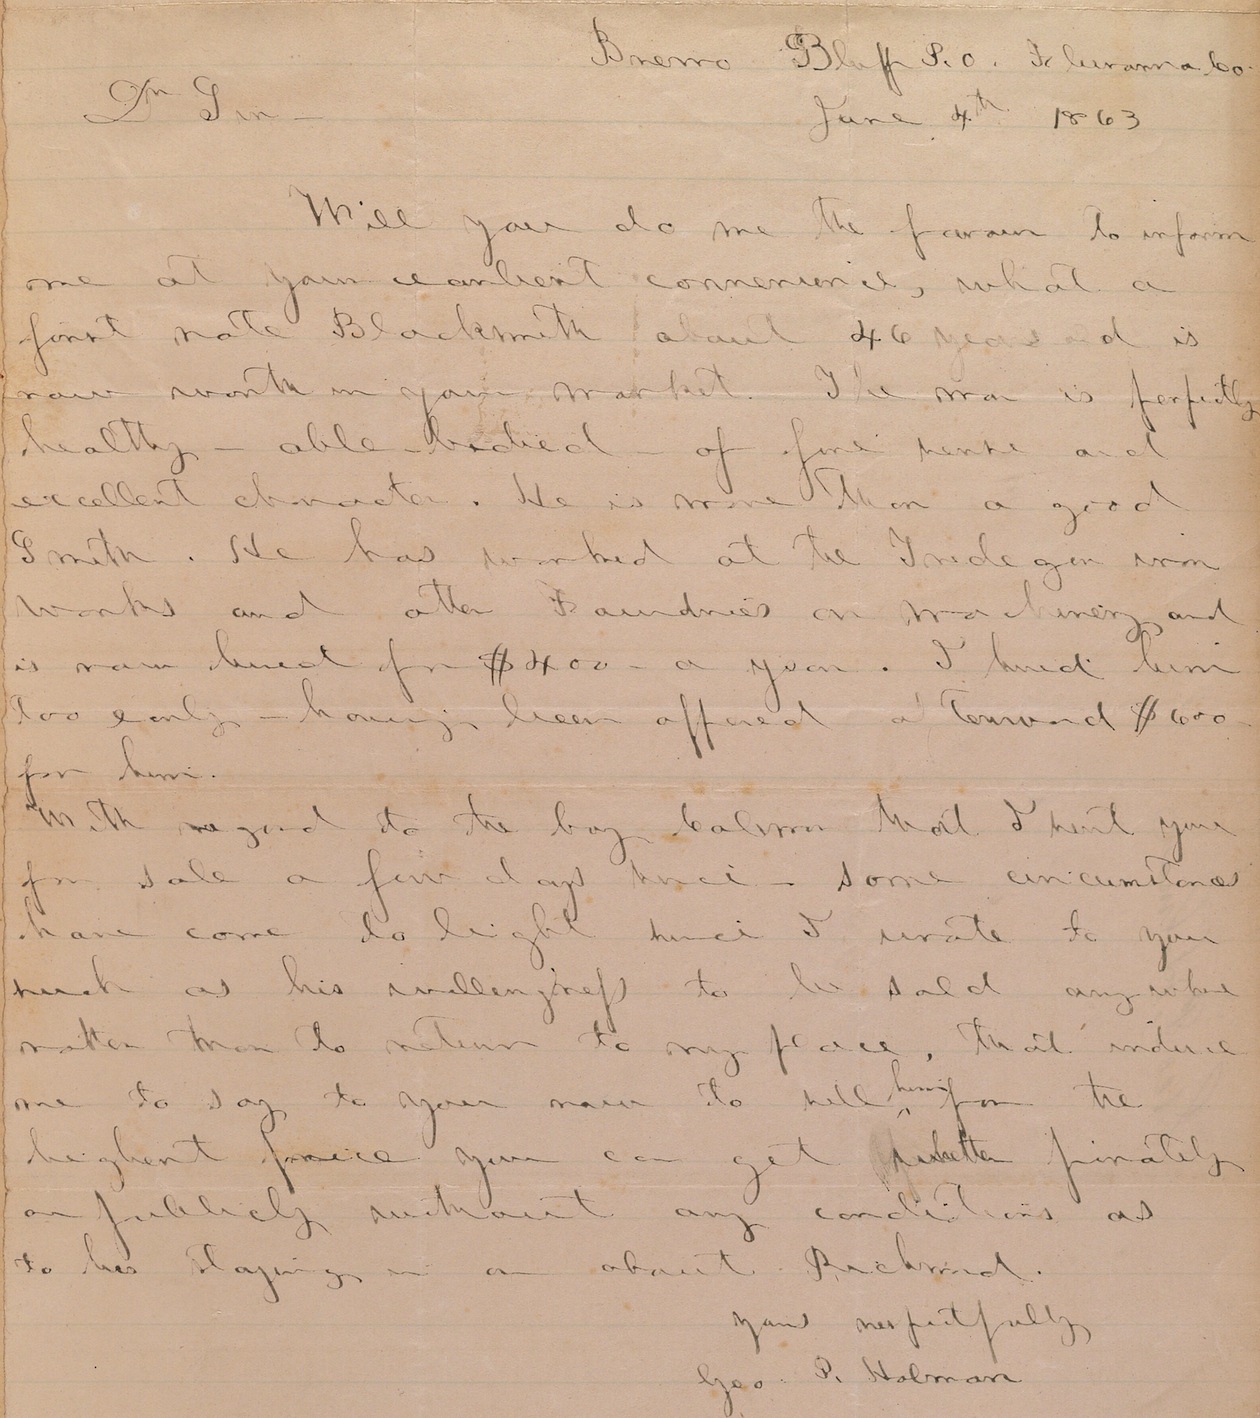 Bremo Bluff P.O. Fluvanna Co.
June 4th 1863
Dr Sir —
Will you do me the favour to inform
me at your earliest convenience, what a
first rate Blacksmith about 46 years old is
now worth in your market. The man is perfectly
healthy — able-bodied — of fine sense and
excellent character. He is more than a good
Smith. He has worked at the Tredegar iron
works and other Foundries on machinery, and
is now hired for $400 — a year. I hired him
too early — having been offered afterward $600
for him.
With regard to the boy Calvin that I sent you
for sale a few days since — some circumstances
have come to light since I wrote to you
such as his willingness to be sold anywhere
rather than to return to my place, that induce
me to say to you now to sell him for the
highest price you can get whether privately
or publicly without any conditions as
to his staying in or about Richmond.
yours respectfully
Geo. P. Holman